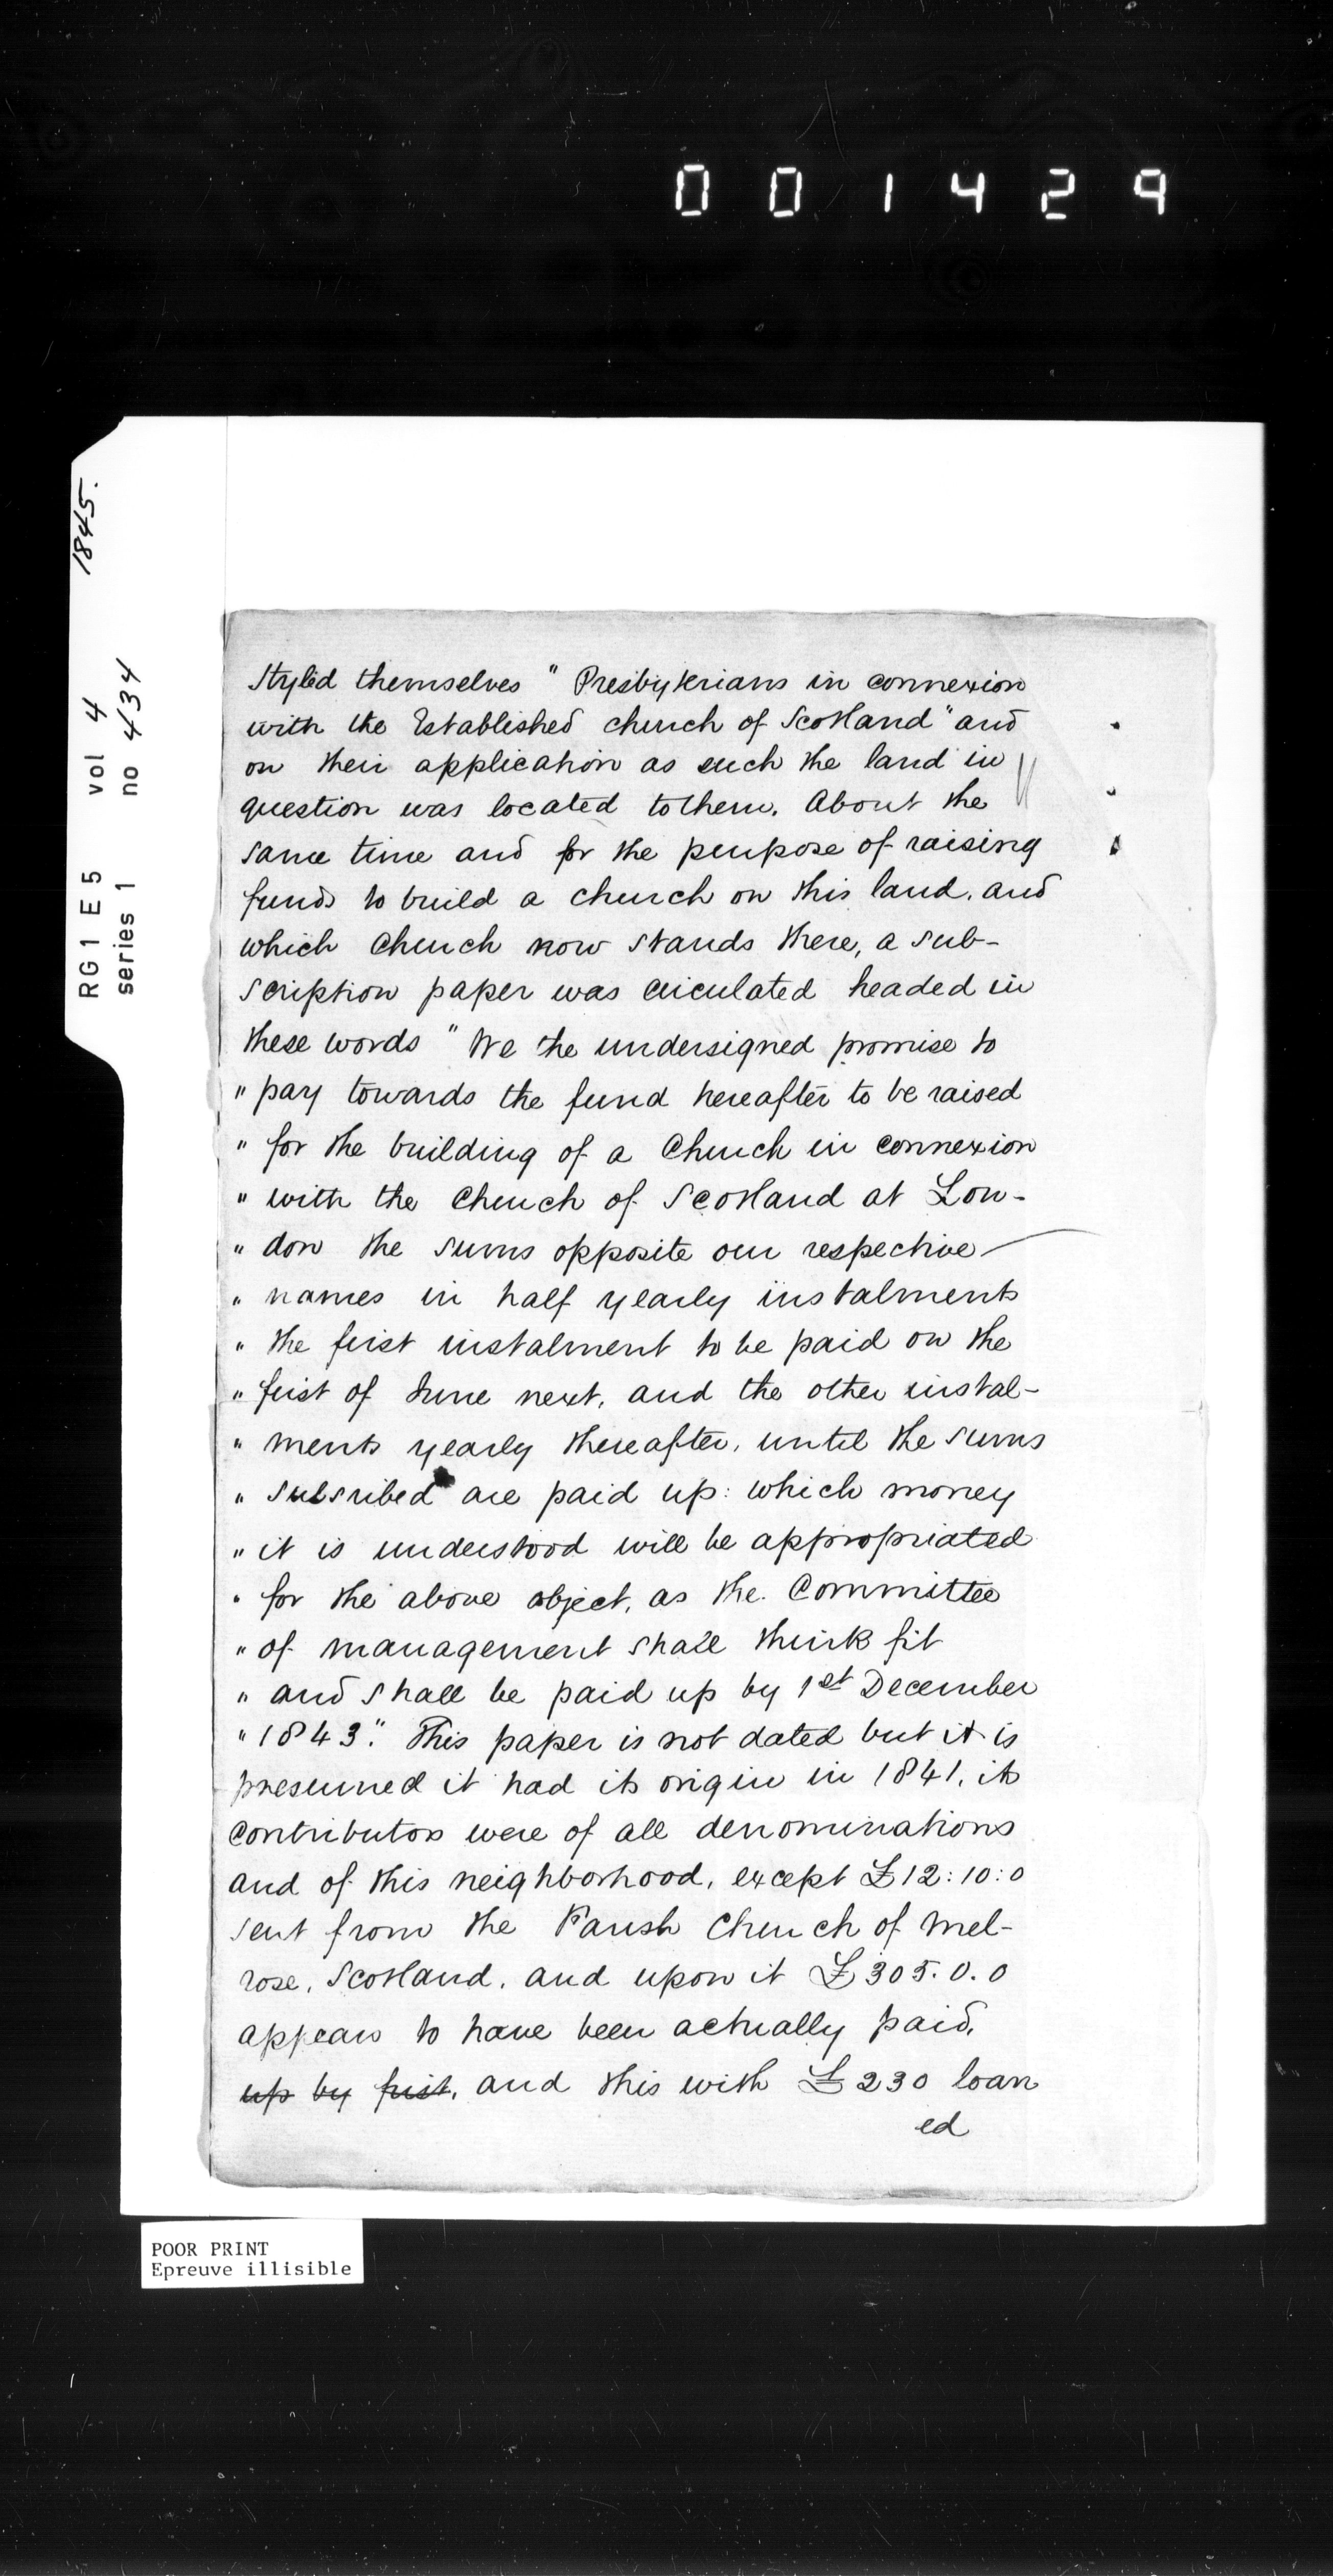 001429
1845.
RG1 E5 vol 4
series 1 no 434
styled themselves " Presbyterians in connexion
with the Established church of Scotland" and
on their application as such the land in
question was located to them. About the
same time and for the purpose of raising
funds to build a church on this land, and
which Church now stands there, a sub-
scription paper was circulated headed in
these words " We the undersigned promise to
" pay towards the fund hereafter to be raised
" for the building of a Church in connexion
" with the Church of Scotland at Lon-
" don the sums opposite our respective
" names in half yearly instalments
" the first instalment to be paid on the
" first of June next, and the other instal-
" ments yearly thereafter, until the sums
" subsribed are paid up: which money
" it is understood will be appropriated
" for the above object, as the Committee
" of management shall think fit
" and shall be paid up by 1st December
" 1843." This paper is not dated but it is
presumed it had its origin in 1841, its
contributors were of all denominations
and of this neighborhood, except £12:10:0
sent from the Parish Church of Mel-
rose, Scotland, and upon it £305.0.0
appears to have been actually paid,
up by first, and this with £230 loan
ed
POOR PRINT
Epreuve illisible